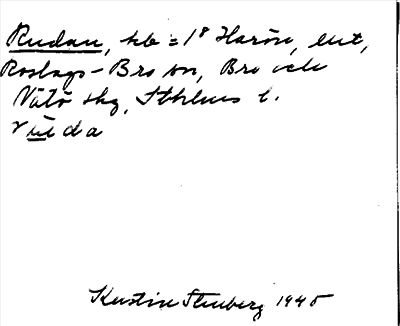 Rudan, hb = 1⁸ Harön, ent,
Roslags-Bro sn, Bro och
Vätö skg, Sthlms l.
rùda
Kerstin Stenberg 1945